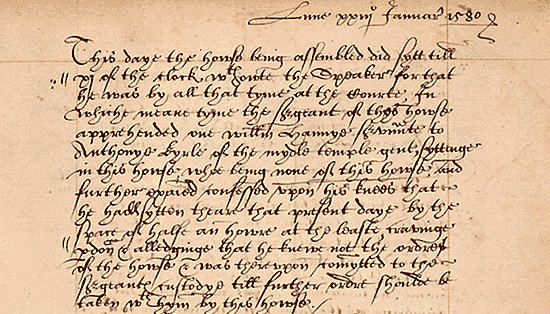 Lune xxiiio Januar 1580
This daye the howse being assembled did sytt till
xi of the clock wthoute the Speaker for that
he was by all that tyme at the Courte. In
whiche meane tyme the Sergeant of this howse
apprehended one Willm Hannye servante to
Anthonye Kyrle of the mydle temple gent syttinge
in this house, who being none of this howse and
further examined confessed upon his knees that
he had sytten theare that present daye by the
space of halfe an howre at the leaste cravinge
pdon & alledginge that he knewe not the ordres
of the howse & was thereupon comytted to the
Sergeants custodye till further ordre shoulde be
taken wth hym by this howse.